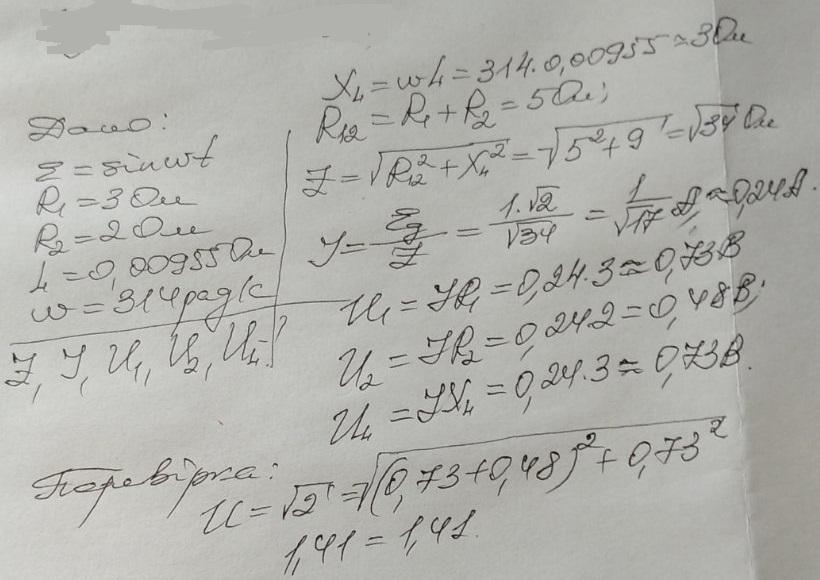 Дано:
ε = sinωt
R₁ = 3 Ом
R₂ = 2 Ом
L = 0,00955 Ом
ω = 314 рад/с
Z, I, U₁, U₂, U_L - ?
X_L = ωL = 314·0,00955 ≈ 3 Ом
R₁₂ = R₁ + R₂ = 5 Ом;
Z = √(R₁₂² + X_L²) = √(5² + 9) = √34 Ом
I = ε_g / Z = 1·√2 / √34 = 1 / √17 A ≈ 0,24 A.
U₁ = IR₁ = 0,24·3 ≈ 0,73 В
U₂ = IR₂ = 0,24·2 = 0,48 В;
U_L = IX_L = 0,24·3 ≈ 0,73 В.
Перевірка:
U = √2 = √((0,73 + 0,48)² + 0,73²)
1,41 = 1,41.